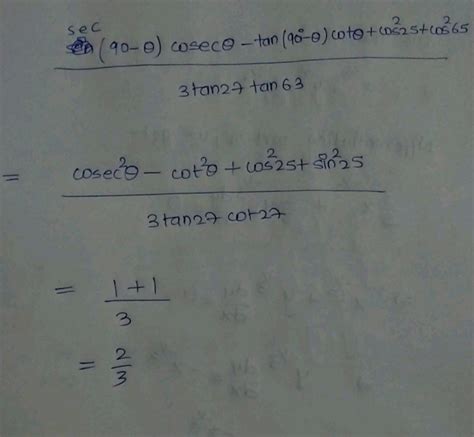 sec
(90-θ) cosecθ - tan(90°-θ)cotθ + cos²25 + cos²65
3tan27 tan63
= cosec²θ - cot²θ + cos²25 + sin²25
3tan27 cot27
= 1+1
3
= 2
3